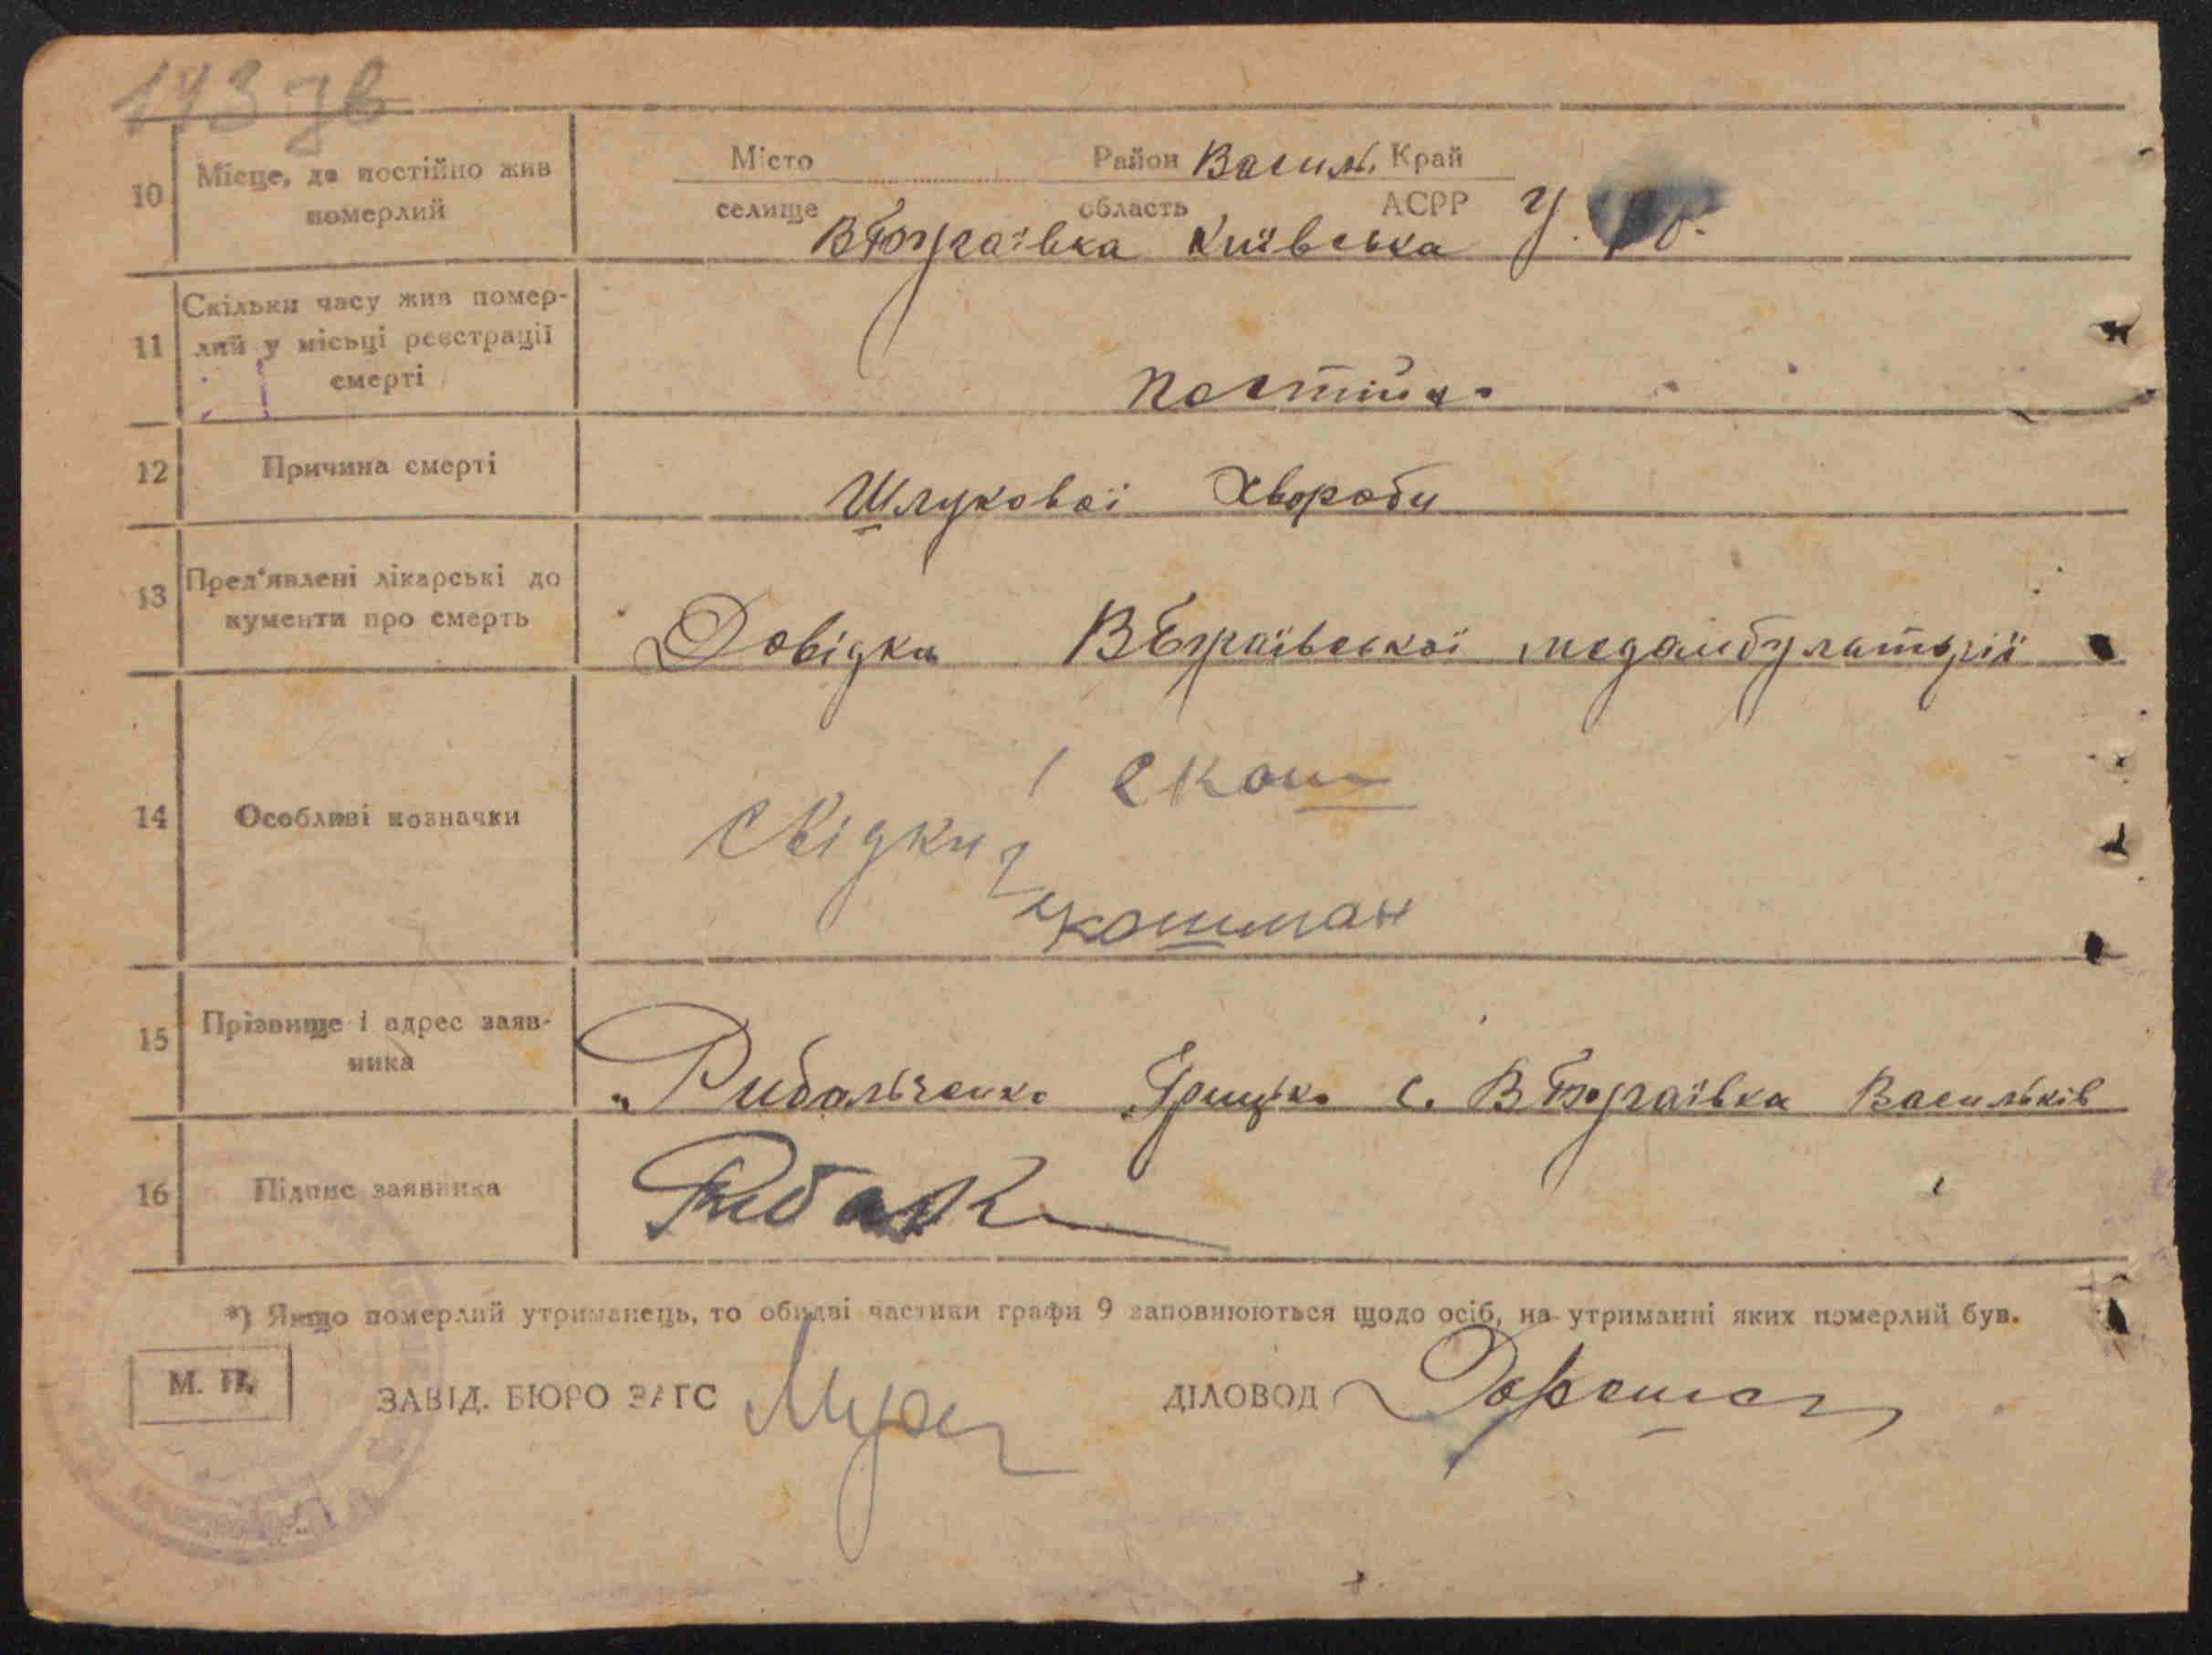 173 зв
10 Місце, де постійно жив
померлий
Місто Район Васильк. Край
селище область АСРР У.
ВБугаївка Київська
11 Скільки часу жив помер-
лий у місьці реєстрації
смерті
постійно
12 Причина смерті
Шлукової хвороби
13 Пред'явлені лікарські до
кументи про смерть
Довідка ВБугаївської медамбулаторії
14 Особливі позначки
Свідки
15 Прізвище і адрес заяв-
ника
Рибальченко Грицько с. ВБугаївка Васильків
16 Підпис заявника
*) Якщо померлий утриманець, то обидві частини графи 9 заповнюються щодо осіб, на утриманні яких померлий був.
М. П.
ЗАВІД. БЮРО ЗАГС
ДІЛОВОД